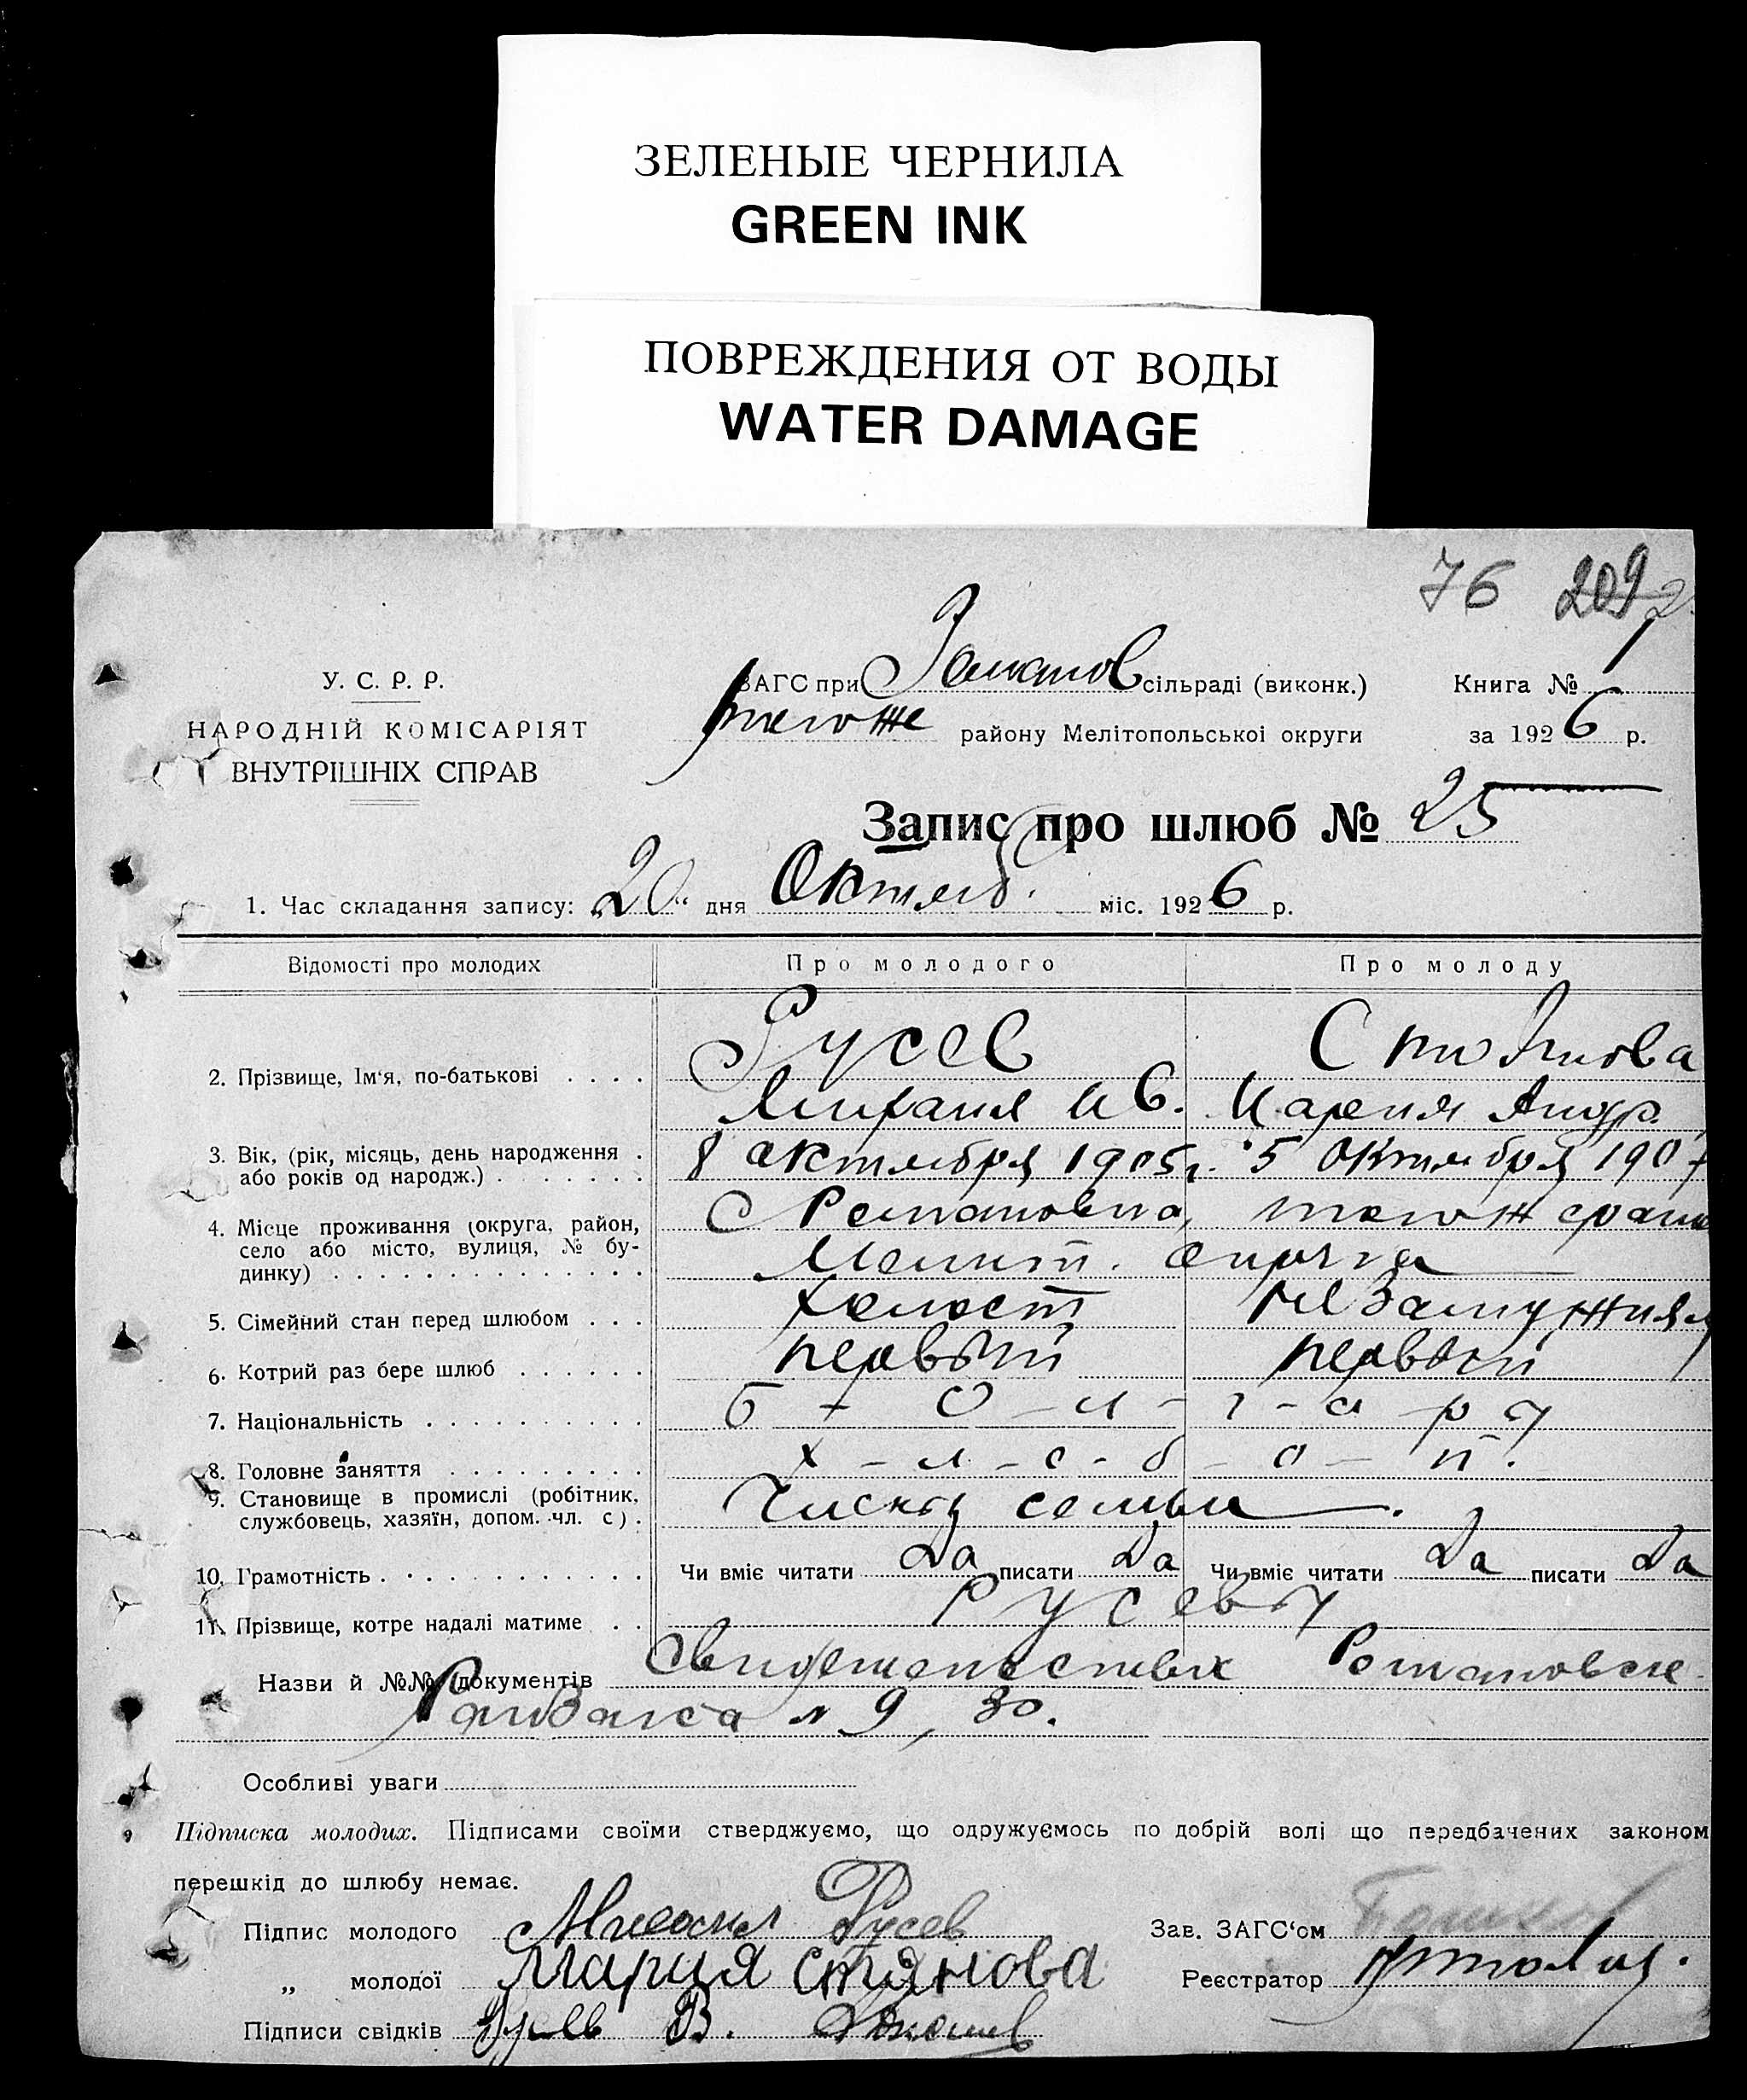 ЗЕЛЕНЫЕ ЧЕРНИЛА
GREEN INK
ПОВРЕЖДЕНИЯ ОТ ВОДЫ
WATER DAMAGE
76 209
У. С. Р. Р.
НАРОДНІЙ КОМІСАРІЯТ
ВНУТРІШНІХ СПРАВ
ЗАГС при сільраді (виконк.)
тогоже району Мелітопольської округи
Книга № 1
за 1926 р.
Запис про шлюб № 25
1. Час складання запису: „20“ дня Октяб. міс. 1926 р.
Відомості про молодих Про молодого Про молоду
2. Прізвище, Ім'я, по-батькові Русев Стоянова
Михаил Ив. Мария Андр.
3. Вік, (рік, місяць, день народження 8 октября 1905 г. 5 октября 1907
або років од народж.)
4. Місце проживання (округа, район, С Романовка, тогож
село або місто, вулиця, № бу- Мелит. округа
динку)
5. Сімейний стан перед шлюбом холост незамужняя
6. Котрий раз бере шлюб первый первый
7. Національність б - о - л - г - а - р ы
8. Головне заняття х - л - е - б - о - п.
9. Становище в промислі (робітник, Члены семьи
службовець, хазяїн, допом. чл. с).
10. Грамотність Чи вміє читати Да писати Да Чи вміє читати Да писати Да
11. Прізвище, котре надалі матиме Русевы
Назви й №№ документів Романовск
Райзагса № 9, 30.
Особливі уваги
Підписка молодих. Підписами своїми стверджуємо, що одружуємось по добрій волі що передбачених законом
перешкід до шлюбу немає.
Підпис молодого Михаил Русев
Зав. ЗАГС'ом
„ молодої Мария Стянова
Реєстратор
Підписи свідків Русев В.